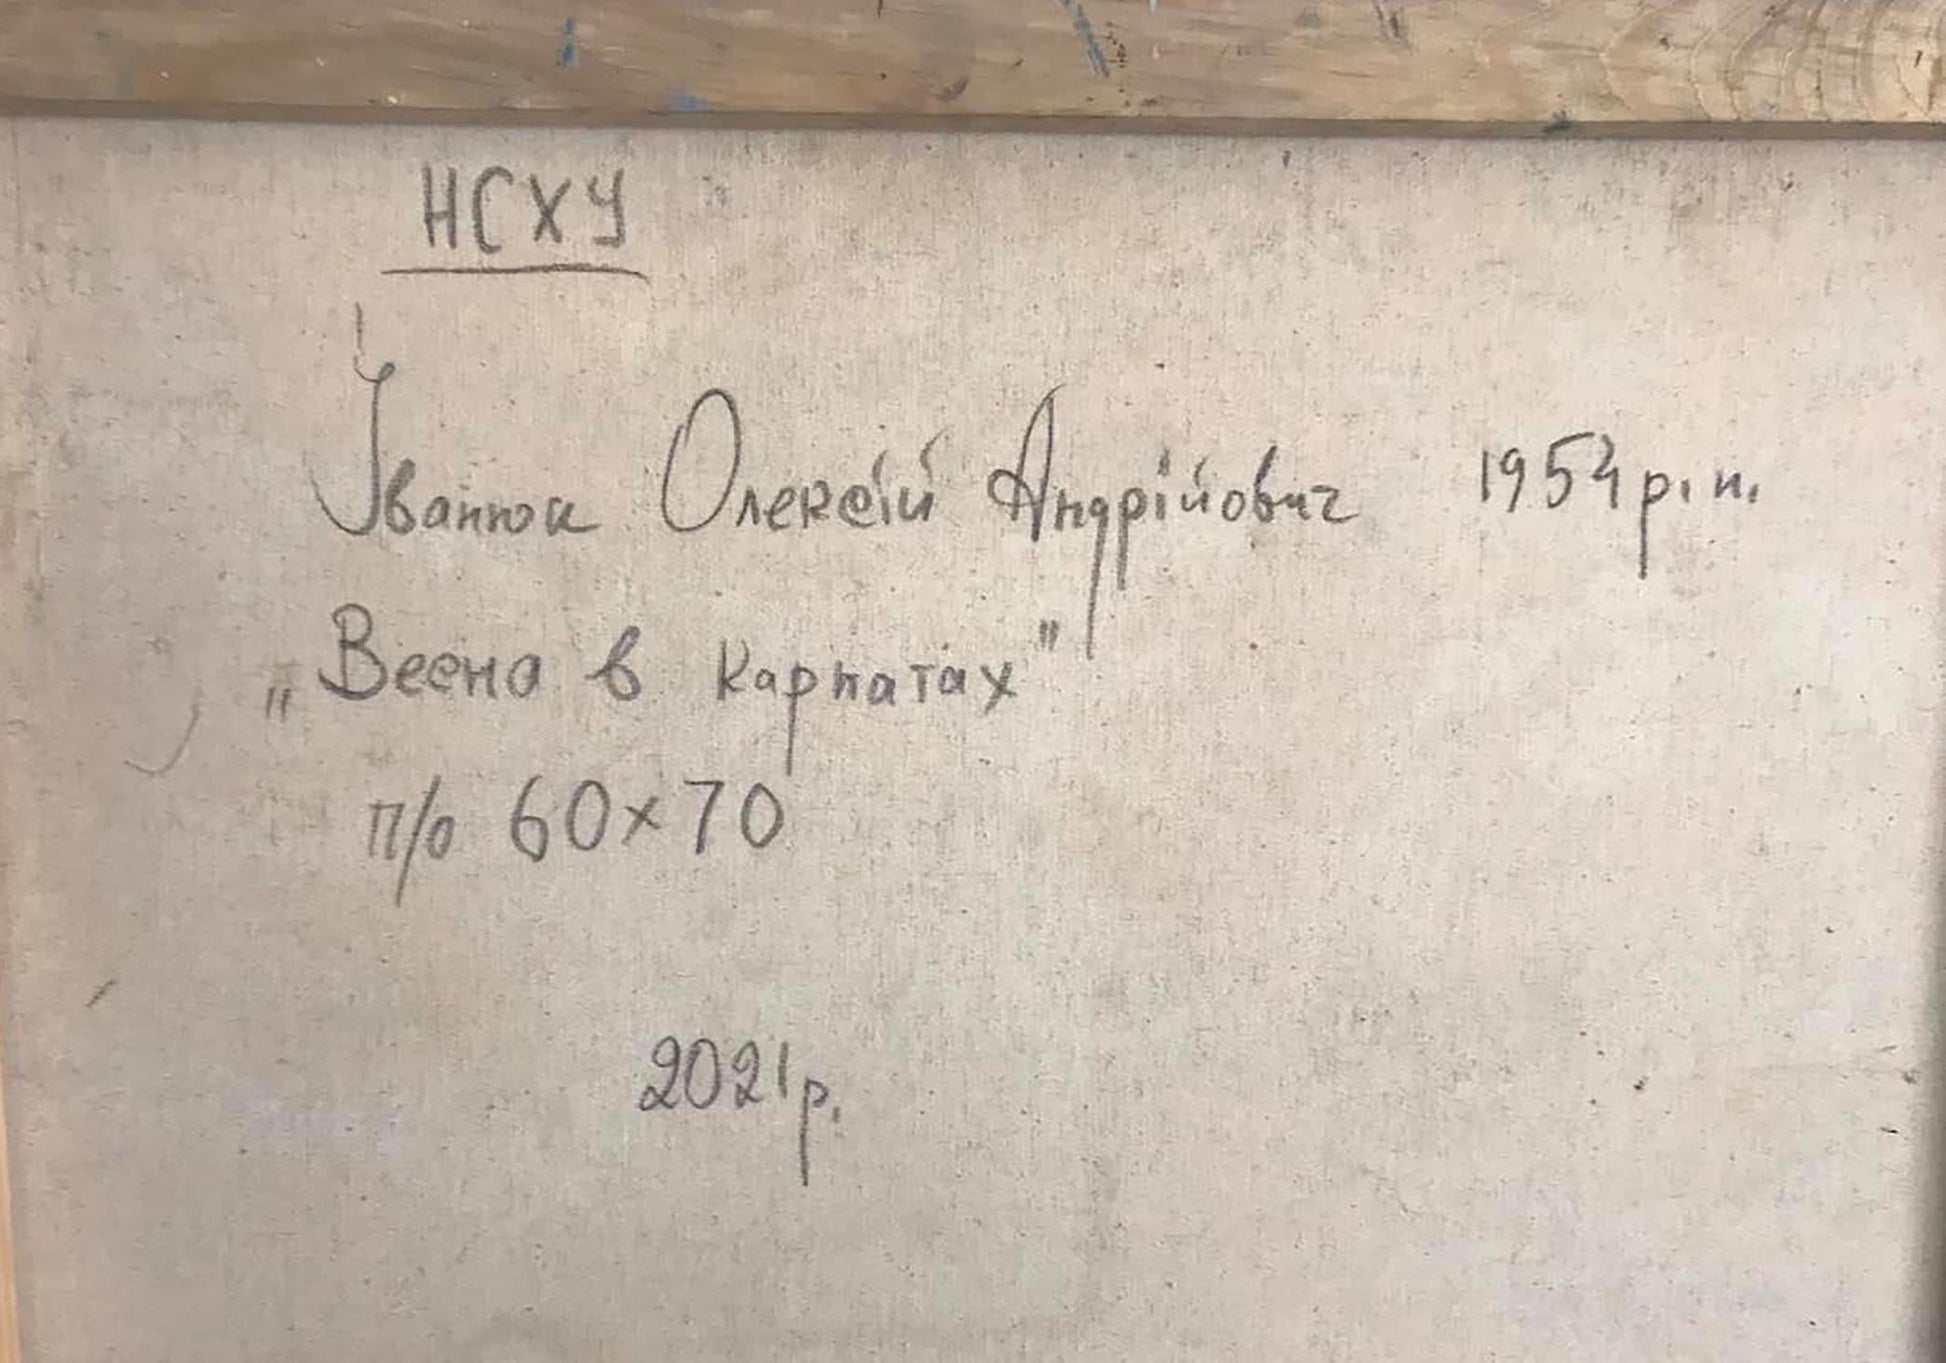 НСХУ
Іванюк Олексій Андрійович 1954 р. н.
„Весна в Карпатах"
п/о 60х70
2021р.